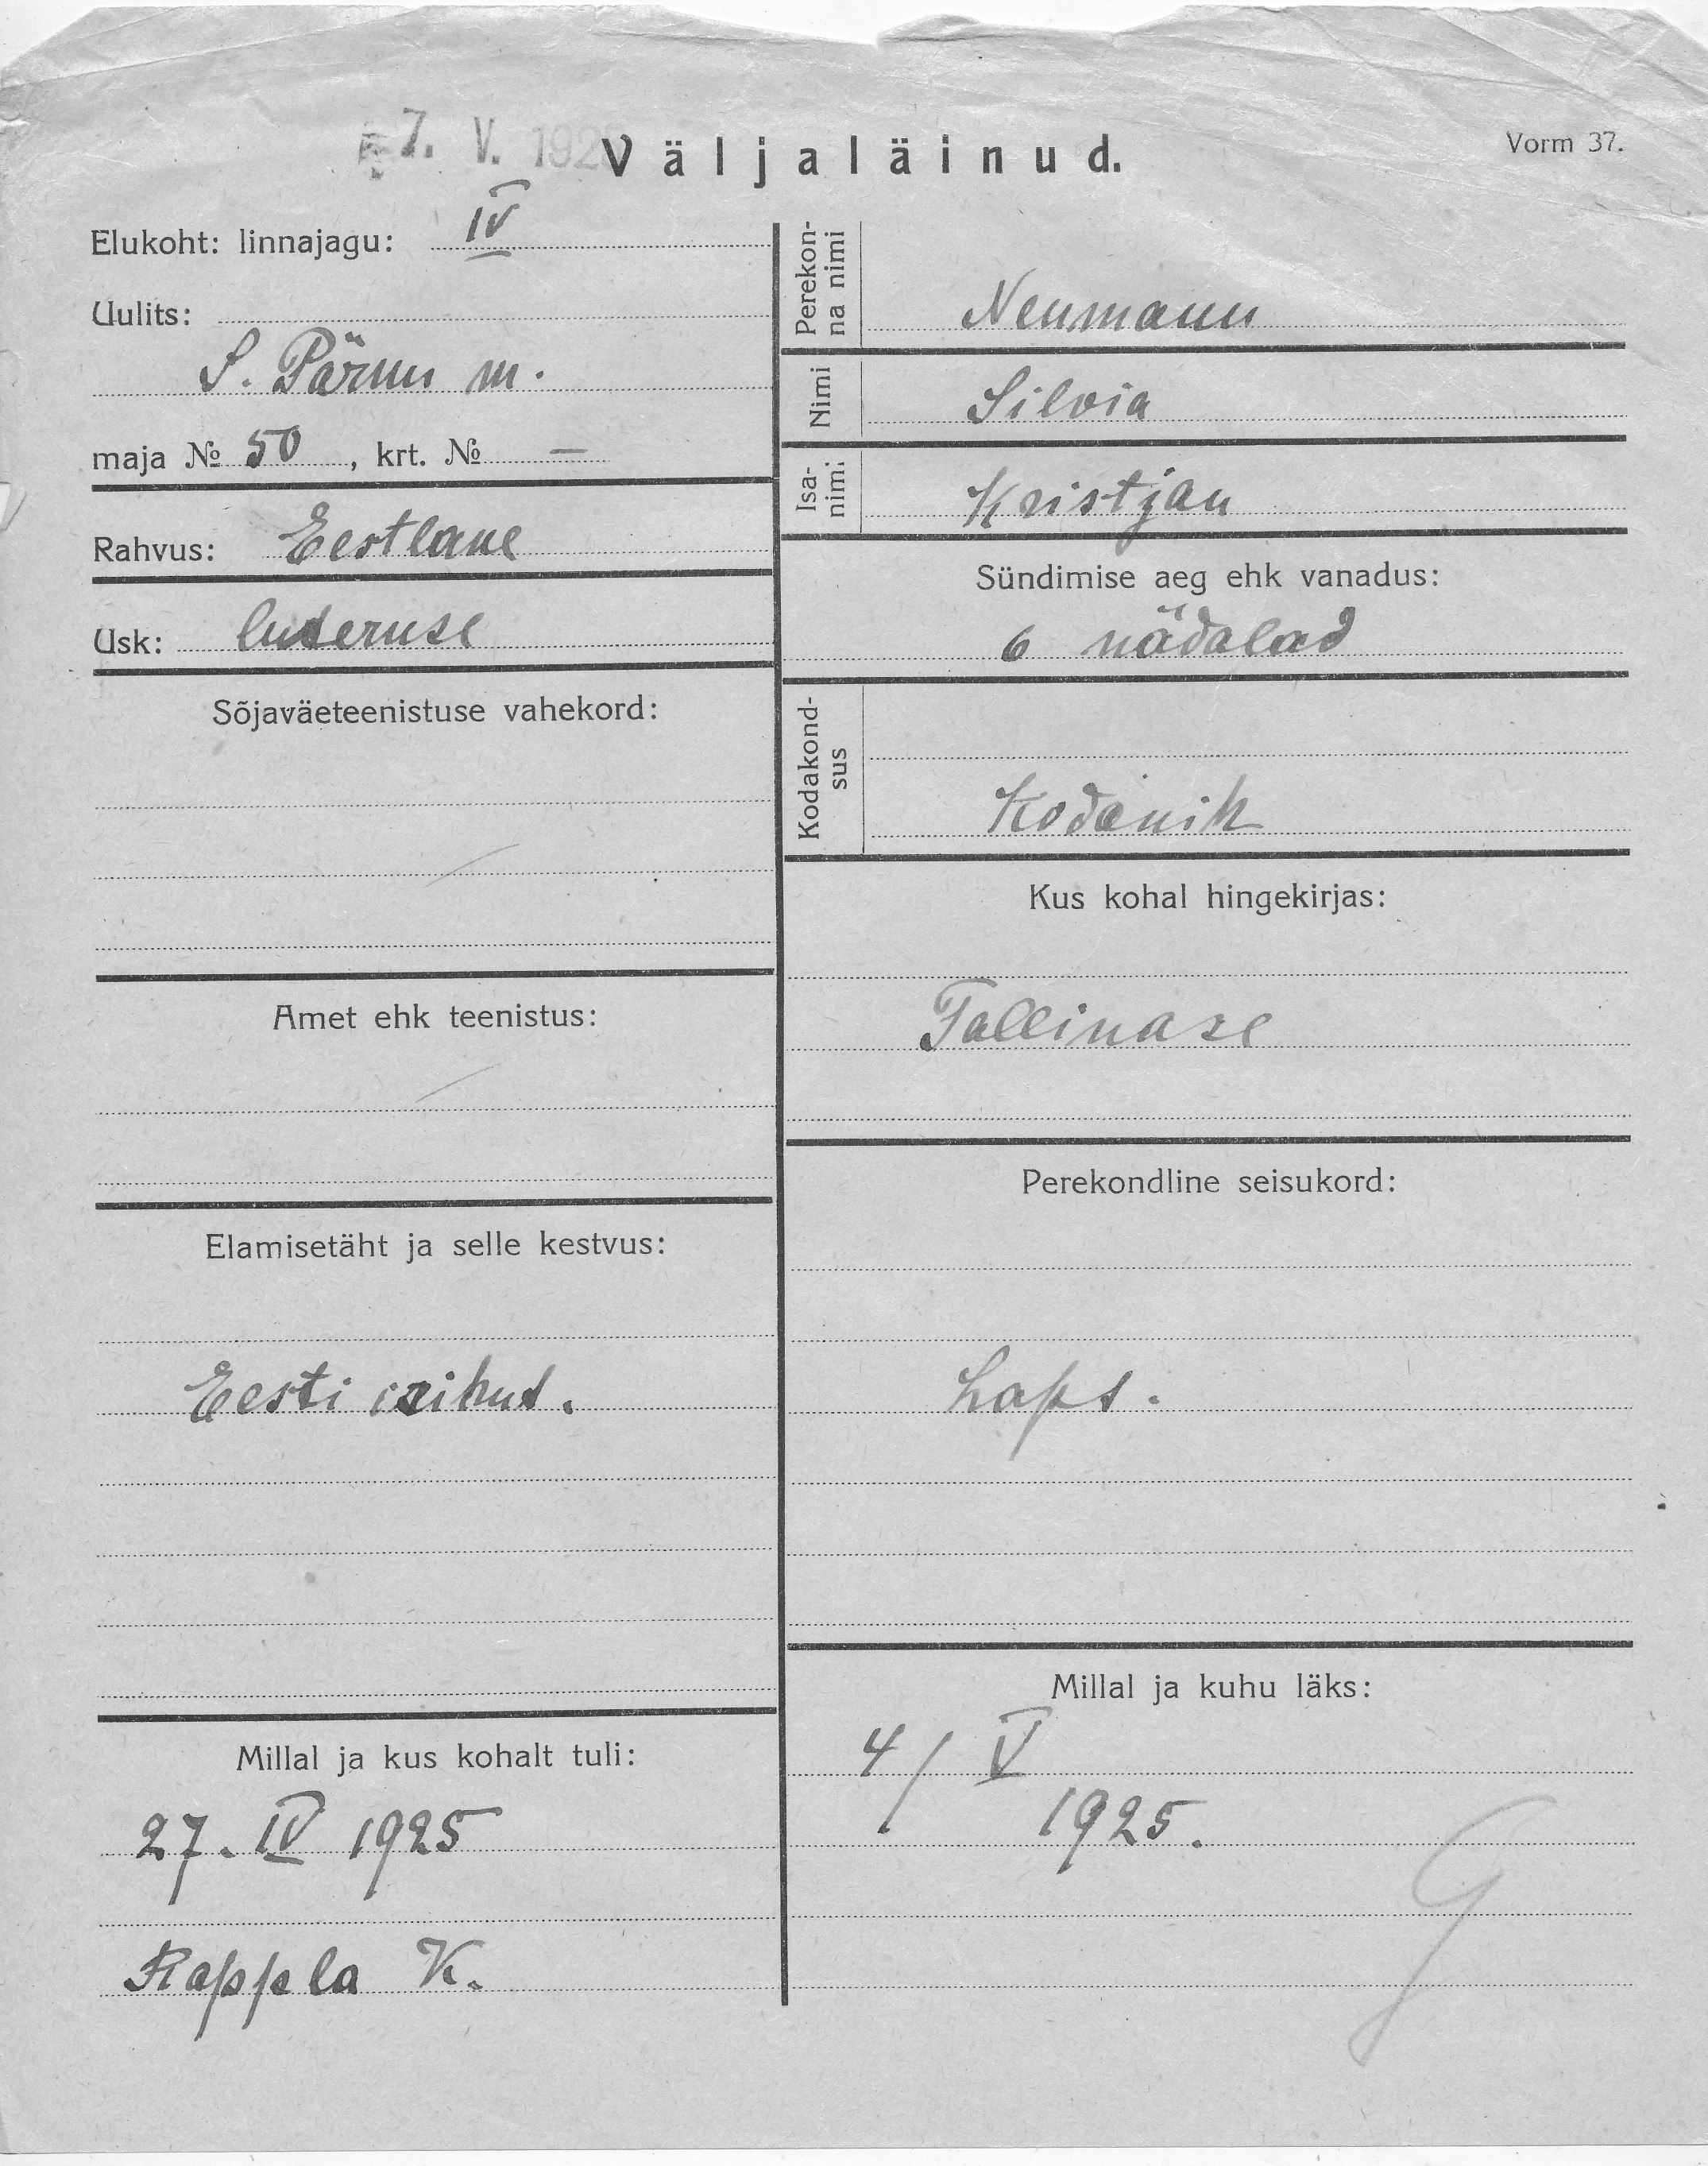 7. V. 192
Väljaläinud.
Vorm 37.
Elukoht: linnajagu: IV
Uulits:
S. Pärnu m.
maja № 50, krt. № —
Rahvus: Eestlane
Usk: luteruse
Sõjaväeteenistuse vahekord:
Amet ehk teenistus:
Elamisetäht ja selle kestvus:
Eesti isikut.
Millal ja kus kohalt tuli:
27. IV 1925
Rappla K.
Perekon-
na nimi
Neumann
Nimi
Silvia
Isa-
nimi
Kristjan
Sündimise aeg ehk vanadus:
6 nädalad
Kodakond-
sus
Kodanik
Kus kohal hingekirjas:
Tallinase
Perekondline seisukord:
Laps.
Millal ja kuhu läks:
4/V
1925.